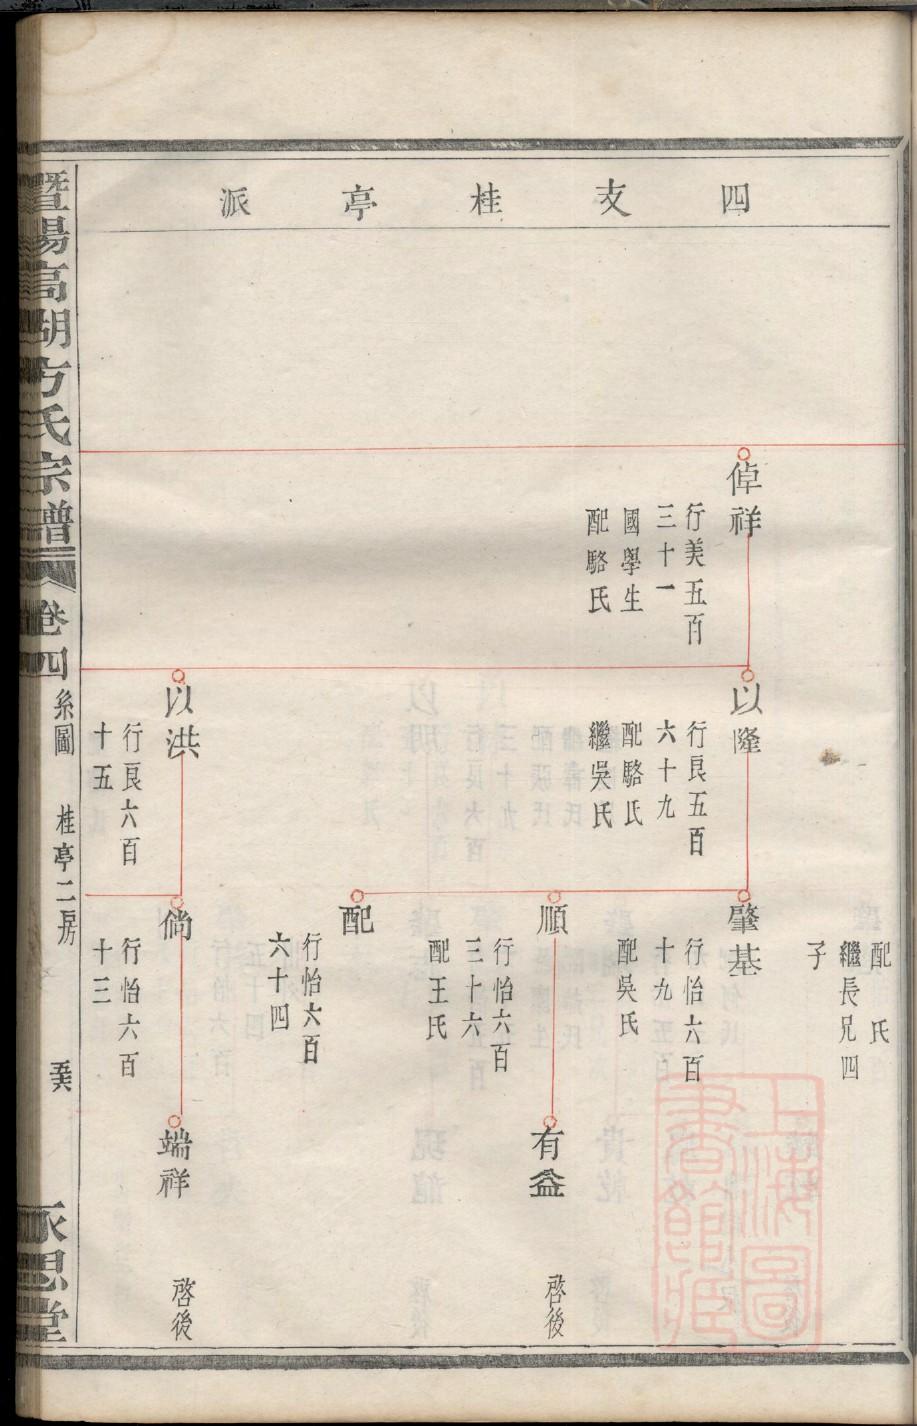 四支桂亭派
倬祥
行美五百
三十一
國學生
配駱氏
以隆
行良五百
六十九
配駱氏
繼吳氏
以洪
行良六百
十五
配 氏
繼長兄四
子
肇基
行怡六百
十九
配吳氏
順
行怡六百
三十六
配王氏
配
行怡六百
六十四
倘
行怡六百
十三
有益
啓後
端祥
啓後
暨陽高湖方氏宗譜
卷四
系圖 桂亭二房
永思堂
上海圖書館藏